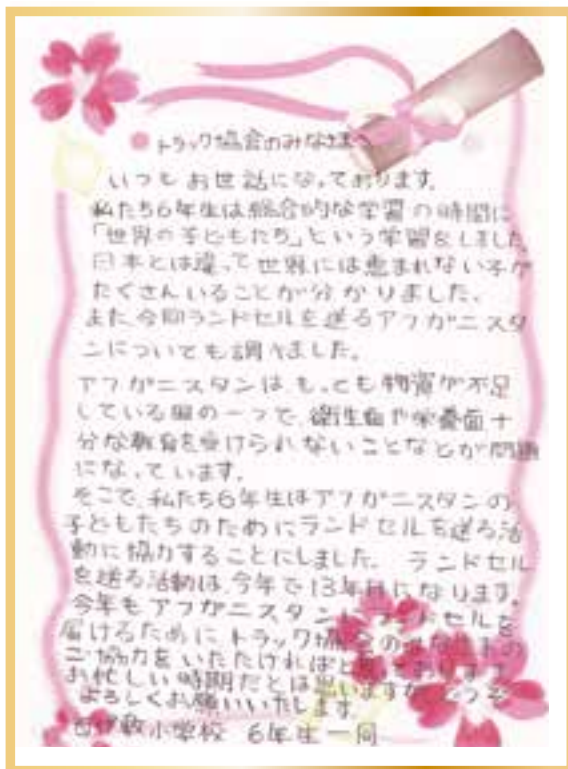 トラック協会のみなさまへ
いつもお世話になっております。
私たち6年生は総合的な学習の時間に
「世界の子どもたち」という学習をしました。
日本とは違って世界には恵まれない子が
たくさんいることが分かりました。
また今回ランドセルを送るアフガニスタ
ンについても調べました。
アフガニスタンはもっとも物資が不足
している国の一つで、衛生面や栄養面十
分な教育を受けられないことなどが問題
になっています。
そこで、私たち6年生はアフガニスタンの
子どもたちのためにランドセルを送る活
動に協力することにしました。ランドセル
を送る活動は、今年で13年目になります。
今年もアフガニスタンにランドセルを
届けるためにトラック協会のみなさまの
ご協力をいただければと思っております。
お忙しい時期だとは思いますが、どうぞ
よろしくお願いいたします。
小学校 6年生一同